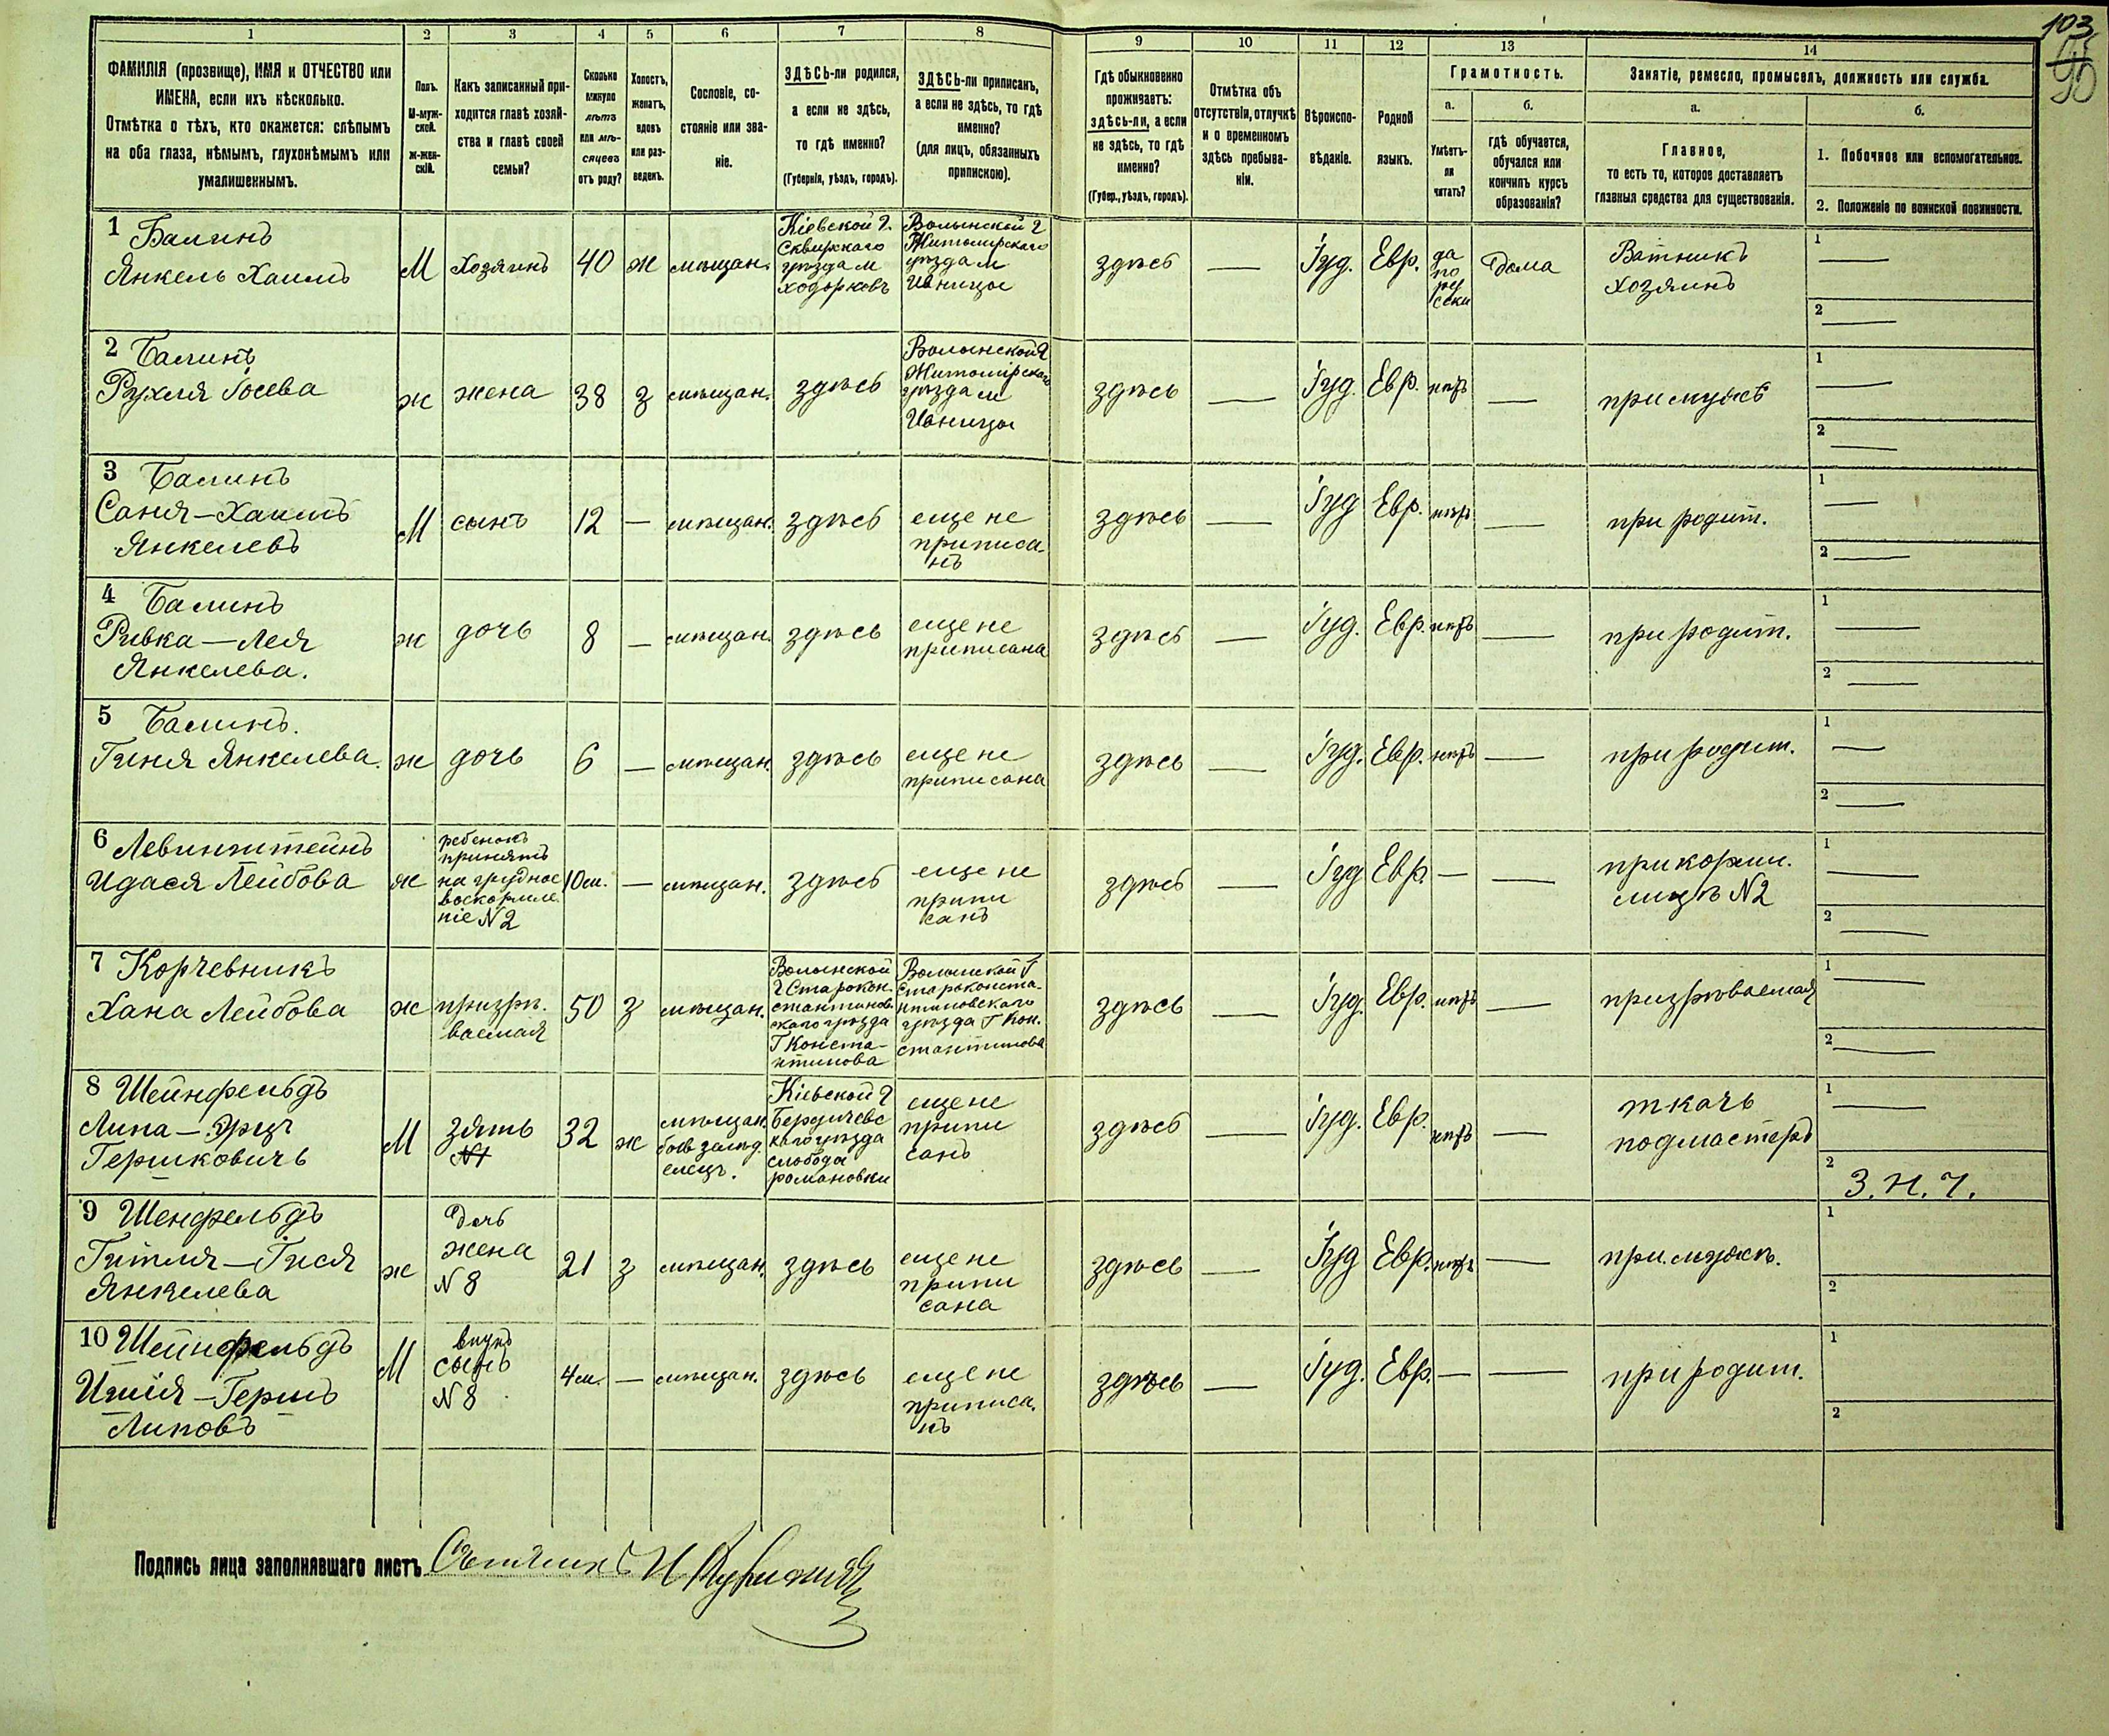 103
90
1 2 3 4 5 6 7 8 9 10 11 12 13 14
ФАМИЛІЯ (прозвище), ИМЯ и ОТЧЕСТВО или
ИМЕНА, если ихъ нѣсколько.
Отмѣтка о тѣхъ, кто окажется: слѣпымъ
на оба глаза, нѣмымъ, глухонѣмымъ или
умалишеннымъ.
Полъ.
М-муж-
ской.
Ж-жен-
скій.
Какъ записанный при-
ходится главѣ хозяй-
ства и главѣ своей
семьи?
Сколько
минуло
лѣтъ
или мѣ-
сяцевъ
отъ роду?
Холостъ,
женатъ,
вдовъ
или раз-
веденъ.
Сословіе, со-
стояніе или зва-
ніе.
ЗДѢСЬ-ли родился,
а если не здѣсь,
то гдѣ именно?
(Губернія, уѣздъ, городъ).
ЗДѢСЬ-ли приписанъ,
а если не здѣсь, то гдѣ
именно?
(для лицъ, обязанныхъ
припискою).
Гдѣ обыкновенно
проживаетъ:
здѣсь-ли, а если
не здѣсь, то гдѣ
именно?
(Губер., уѣздъ, городъ).
Отмѣтка объ
отсутствіи, отлучкѣ
и о временномъ
здѣсь пребыва-
ніи.
Вѣроиспо-
вѣданіе.
Родной
языкъ.
Грамотность.
а.
Умѣетъ-
ли
читать?
б.
гдѣ обучается,
обучался или
кончилъ курсъ
образованія?
Занятіе, ремесло, промыселъ, должность или служба.
а.
Главное,
то есть то, которое доставляетъ
главныя средства для существованія.
б.
1. Побочное или вспомогательное.
2. Положеніе по воинской повинности.
1 Балинъ
Янкель Хаимъ
М
Хозяинъ
40
ж
мѣщан.
Кіевской г.
Сквирскаго
уѣзда м
Ходорковъ
Волынской г
Житомирскаго
уѣзда м
Ивницы
здѣсь
—
Іуд.
Евр.
да
по
рус
ски
Дома
Ватникъ
хозяинъ
1 —
2 —
2 Балинъ
Рухля Іосева
ж
жена
38
з
мѣщан.
здѣсь
Волынской г
Житомірскаго
уѣзда м
Ивницы
здѣсь
—
Іуд.
Евр.
нѣтъ
—
при мужѣ
1 —
2 —
3 Балинъ
Саня-Хаимъ
Янкелевъ
М
сынъ
12
—
мѣщан.
здѣсь
еще не
приписа-
нъ
здѣсь
—
Іуд
Евр.
нѣтъ
—
при родит.
1 —
2 —
4 Балинъ
Ривка-Лея
Янкелева.
ж
дочь
8
—
мѣщан.
здѣсь
еще не
приписана
здѣсь
—
Іуд.
Евр.
нѣтъ
—
при родит.
1 —
2 —
5 Балинъ.
Гиня Янкелева.
ж
дочь
6
—
мѣщан.
здѣсь
еще не
приписана
здѣсь
—
Іуд.
Евр.
нѣтъ
—
при родит.
1 —
2 —
6 Левинштейнъ
Идася Лейбова
ж
ребенокъ
принятъ
на грудное
воскормле
ніе N2
10 м.
—
мѣщан.
здѣсь
еще не
припи
санъ
здѣсь
—
Іуд
Евр.
—
—
при корми.
лицѣ N2
1 —
2 —
7 Корчевникъ
Хана Лейбова
ж
призрѣ.
ваемая
50
з
мѣщан.
Волынской
г Старокон.
стантинов
скаго уѣзда
Г Конста-
нтинова
Волынской г
Староконста-
нтиновскаго
уѣзда Г Кон.
стантинова
здѣсь
—
Іуд.
Евр.
нѣтъ
—
призрѣваемая
1 —
2 —
8 Шейнфельдъ
Липа-Эрцъ
Гершковичъ
М
зять
N1
32
ж
мѣщан.
Кіевской г
Бердичевс
каго уѣзда
слобода
романовки
еще не
припи
санъ
здѣсь
—
Іуд.
Евр.
нѣтъ
—
ткачъ
подмастеръ
1 —
2 З.Н.Ч.
9 Шенфельдъ
Гитля-Гися
Янкелева
ж
Дочь
жена
N 8
21
з
мѣщан.
здѣсь
еще не
припи
сана
здѣсь
—
Іуд
Евр.
нѣтъ
—
при мужѣ.
1
2
10 Шейнфельдъ
Ишія-Гершъ
Липовъ
М
внукъ
сынъ
N 8
4 м.
—
мѣщан.
здѣсь
еще не
приписа.
нъ
здѣсь
—
Іуд.
Евр.
—
—
при родит.
1
2
Подпись лица заполнявшаго листъ